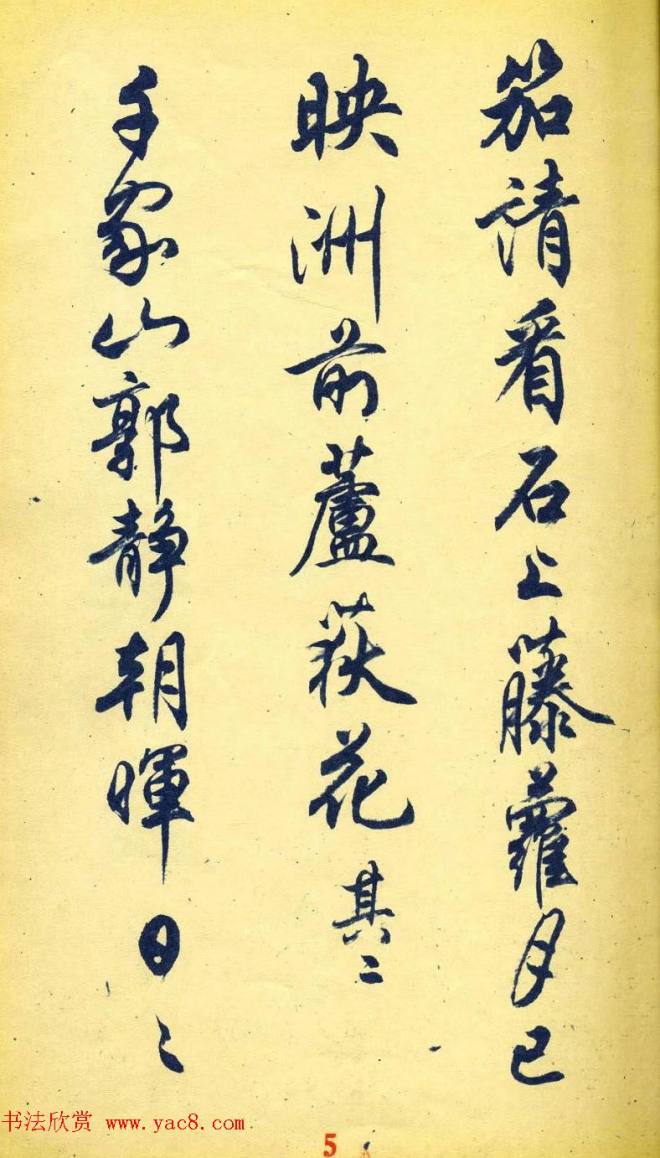 笳请看石上藤蘿月已
映洲前蘆荻花 其二
千家山郭静朝暉日〻
书法欣赏 www.yac8.com
5